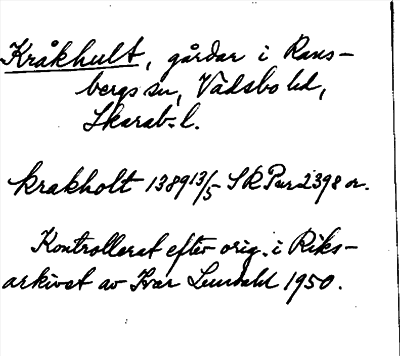 Kråkhult, gårdar i Rans-
bergs sn, Vadsbo hd,
Skarab. l.
krakholt 1389 13/5 SRPerg 2398 or.
Kontrollerat efter orig. i Riks-
arkivet av Ivar Lundahl 1950.